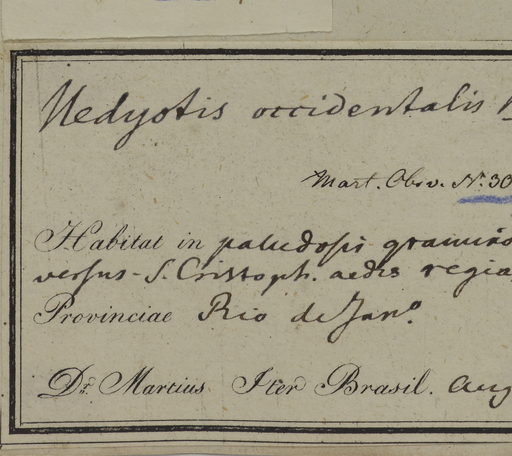 Hedyotis occidentalis
Mart. Obsv. N. 30
Habitat in paludosis gramino
versus S. Cristoph. aedis regia
Provinciae Rio de Jano.
Dr. Martius Iter Brasil. Aug